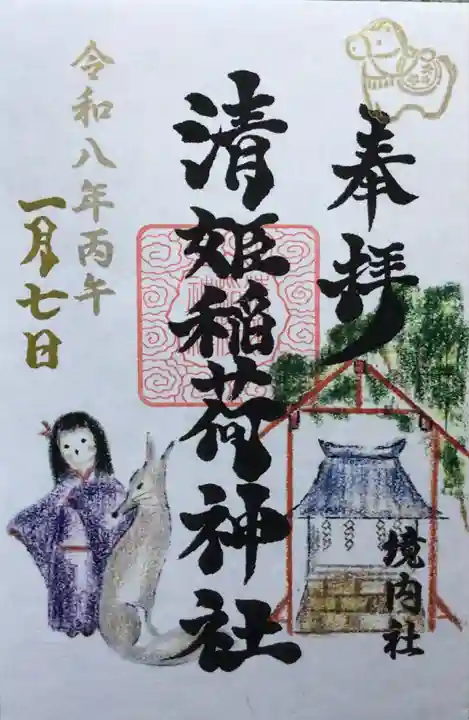 奉拝
境内社
清姫稲荷神社
令和八年丙午
一月七日